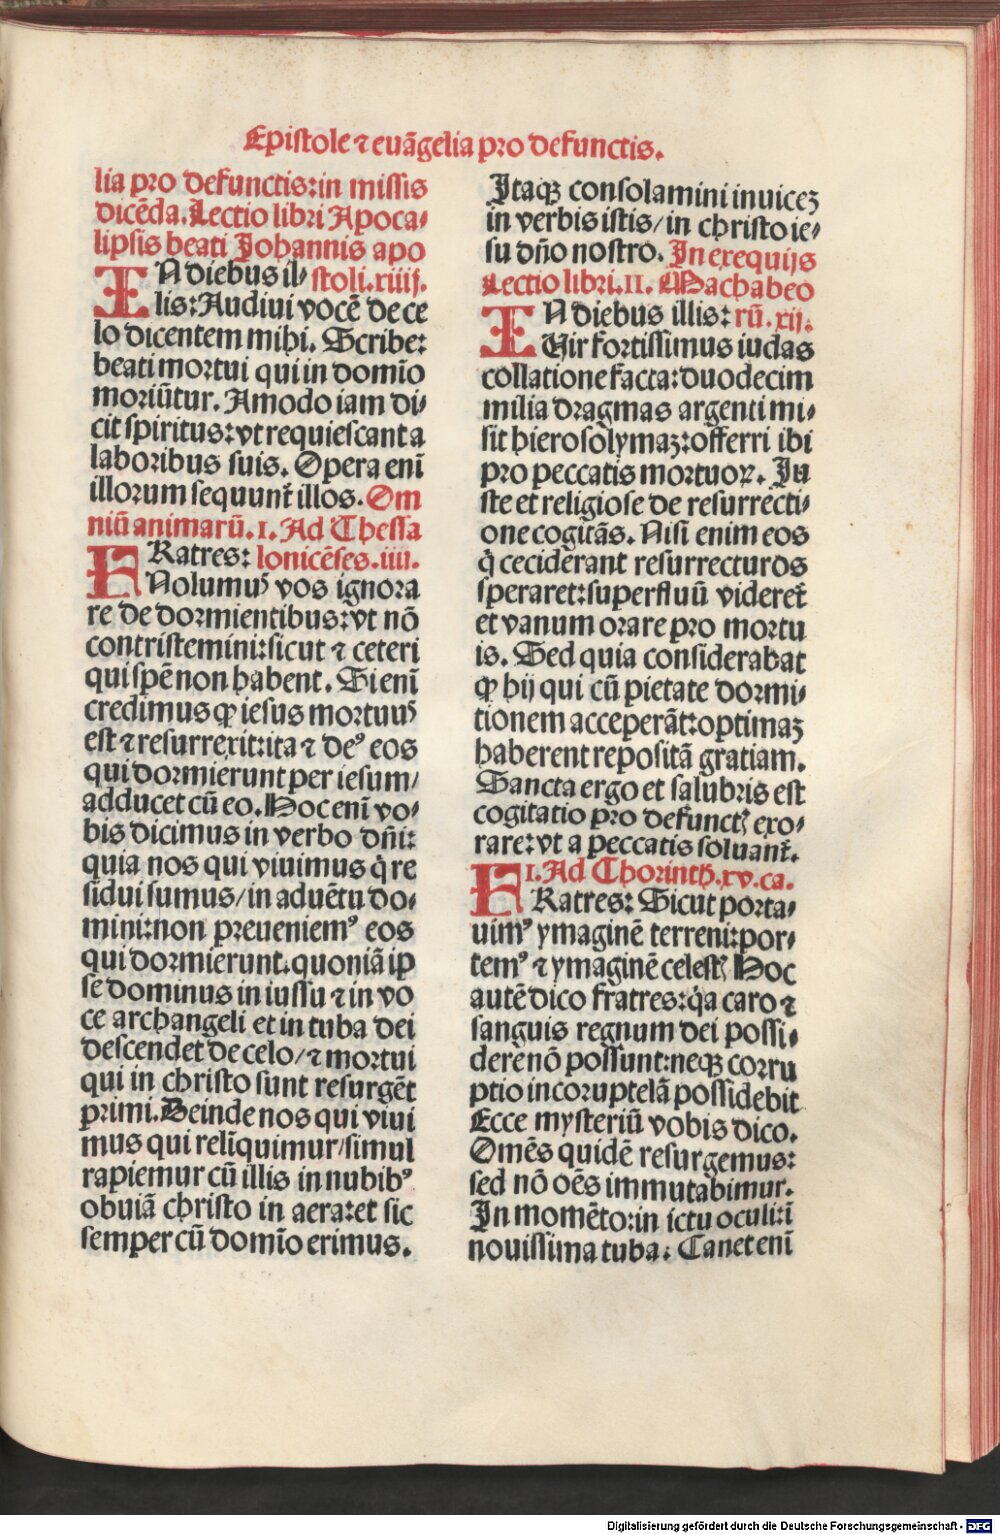 Epistole ⁊ euãgelia pro defunctis.
lia pro defunctis:in missis
dicẽda. Lectio libri Apoca⸗
lipsis beati Johannis apo
IN diebus il⸗ stoli.xiiij.
lis:Audiui vocẽ de ce
lo dicentem mihi. Scribe:
beati mortui qui in domĩo
moriũtur. Amodo iam di⸗
cit spiritus:vt requiescant a
laboribus suis. Opera enĩ
illorum sequunt᷑ illos. Om
niũ animarũ.1. Ad Thessa
FRatres: lonicẽses.iiii.
Nolumuꝰ vos ignora
re de dormientibus:vt nõ
contristemini:sicut ⁊ ceteri
qui spẽ non habent. Si enĩ
credimus ꝙ iesus mortuuꝰ
est ⁊ resurrexit:ita ⁊ deꝰ eos
qui dormierunt per iesum/
adducet cũ eo. Hoc enĩ vo⸗
bis dicimus in verbo dñi:
quia nos qui viuimus q̇ re
sidui sumus/in aduẽtu do⸗
mini:non preueniemꝰ eos
qui dormierunt.quoniã ip
se dominus in iussu ⁊ in vo
ce archangeli et in tuba dei
descendet de celo/⁊ mortui
qui in christo sunt resurgẽt
primi. Deinde nos qui viui
mus qui relĩquimur/simul
rapiemur cũ illis in nubibꝰ
obuiã christo in aera:et sic
semper cũ domĩo erimus.
Itaqꝫ consolamini inuiceꝫ
in verbis istis/in christo ie⸗
su dño nostro. In exequijs
Lectio libri.II. Machabeo
IN diebus illis: rũ.xij.
Vir fortissimus iudas
collatione facta:duodecim
milia dragmas argenti mi⸗
sit hierosolymaꝫ:offerri ibi
pro peccatis mortuoꝝ. Ju
ste et religiose de resurrecti⸗
one cogitãs. Nisi enim eos
q̇ ceciderant resurrecturos
speraret:superfluũ videret᷑
et vanum orare pro mortu
is. Sed quia considerabat
ꝙ hij qui cũ pietate dormi⸗
tionem acceperãt:optimaꝫ
haberent repositã gratiam.
Sancta ergo et salubris est
cogitatio pro defunctꝭ exo⸗
rare:vt a peccatis soluant᷑.
1. Ad Chorinth.xv.ca.
FRatres: Sicut porta⸗
uimꝰ ymaginẽ terreni:por⸗
temꝰ ⁊ ymaginẽ celestꝭ Hoc
autẽ dico fratres:q̇a caro ⁊
sanguis regnum dei possi⸗
dere nõ possunt:neqꝫ corru
ptio incoruptelã possidebit
Ecce mysteriũ vobis dico.
Omẽs quidẽ resurgemus:
sed nõ oẽs immutabimur.
In momẽto:in ictu oculi:ĩ
nouissima tuba. Canet enĩ
Digitalisierung gefördert durch die Deutsche Forschungsgemeinschaft - DFG